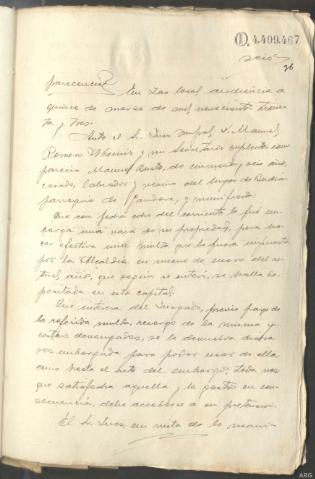 (I). 4.409.467
seis
26
parecencia En Las Casas audiencia a
quince de marzo de mil novecientos trein-
ta y tres.
Ante el S. Juez municipal D. Manuel
Roman y su Secretario suplente com-
parece Manuel, de cincuenta y seis años,
casado, labrador y vecino del lugar de
parroquia de, y manifiesta:
Que con fecha ocho del corriente le fué em-
bargada una vaca de su propiedad, para ha-
cer efectiva una multa que le fuera impuesta
por la Alcaldía en menos de enero del ac-
tual año, que según se enteró, se halla de-
positada en esta capital.
Que interesa del Juzgado, previo pago de
la referida multa, recargo de la misma y
costas devengadas, se le devuelva dicha
res embargada para poder usar de ella
como hasta el acto del embargo, toda vez
que satisfecha aquella y los gastos en con-
secuencia, debe accederse a su pretensión.
El S. Juez en vista de lo mani-
ARG